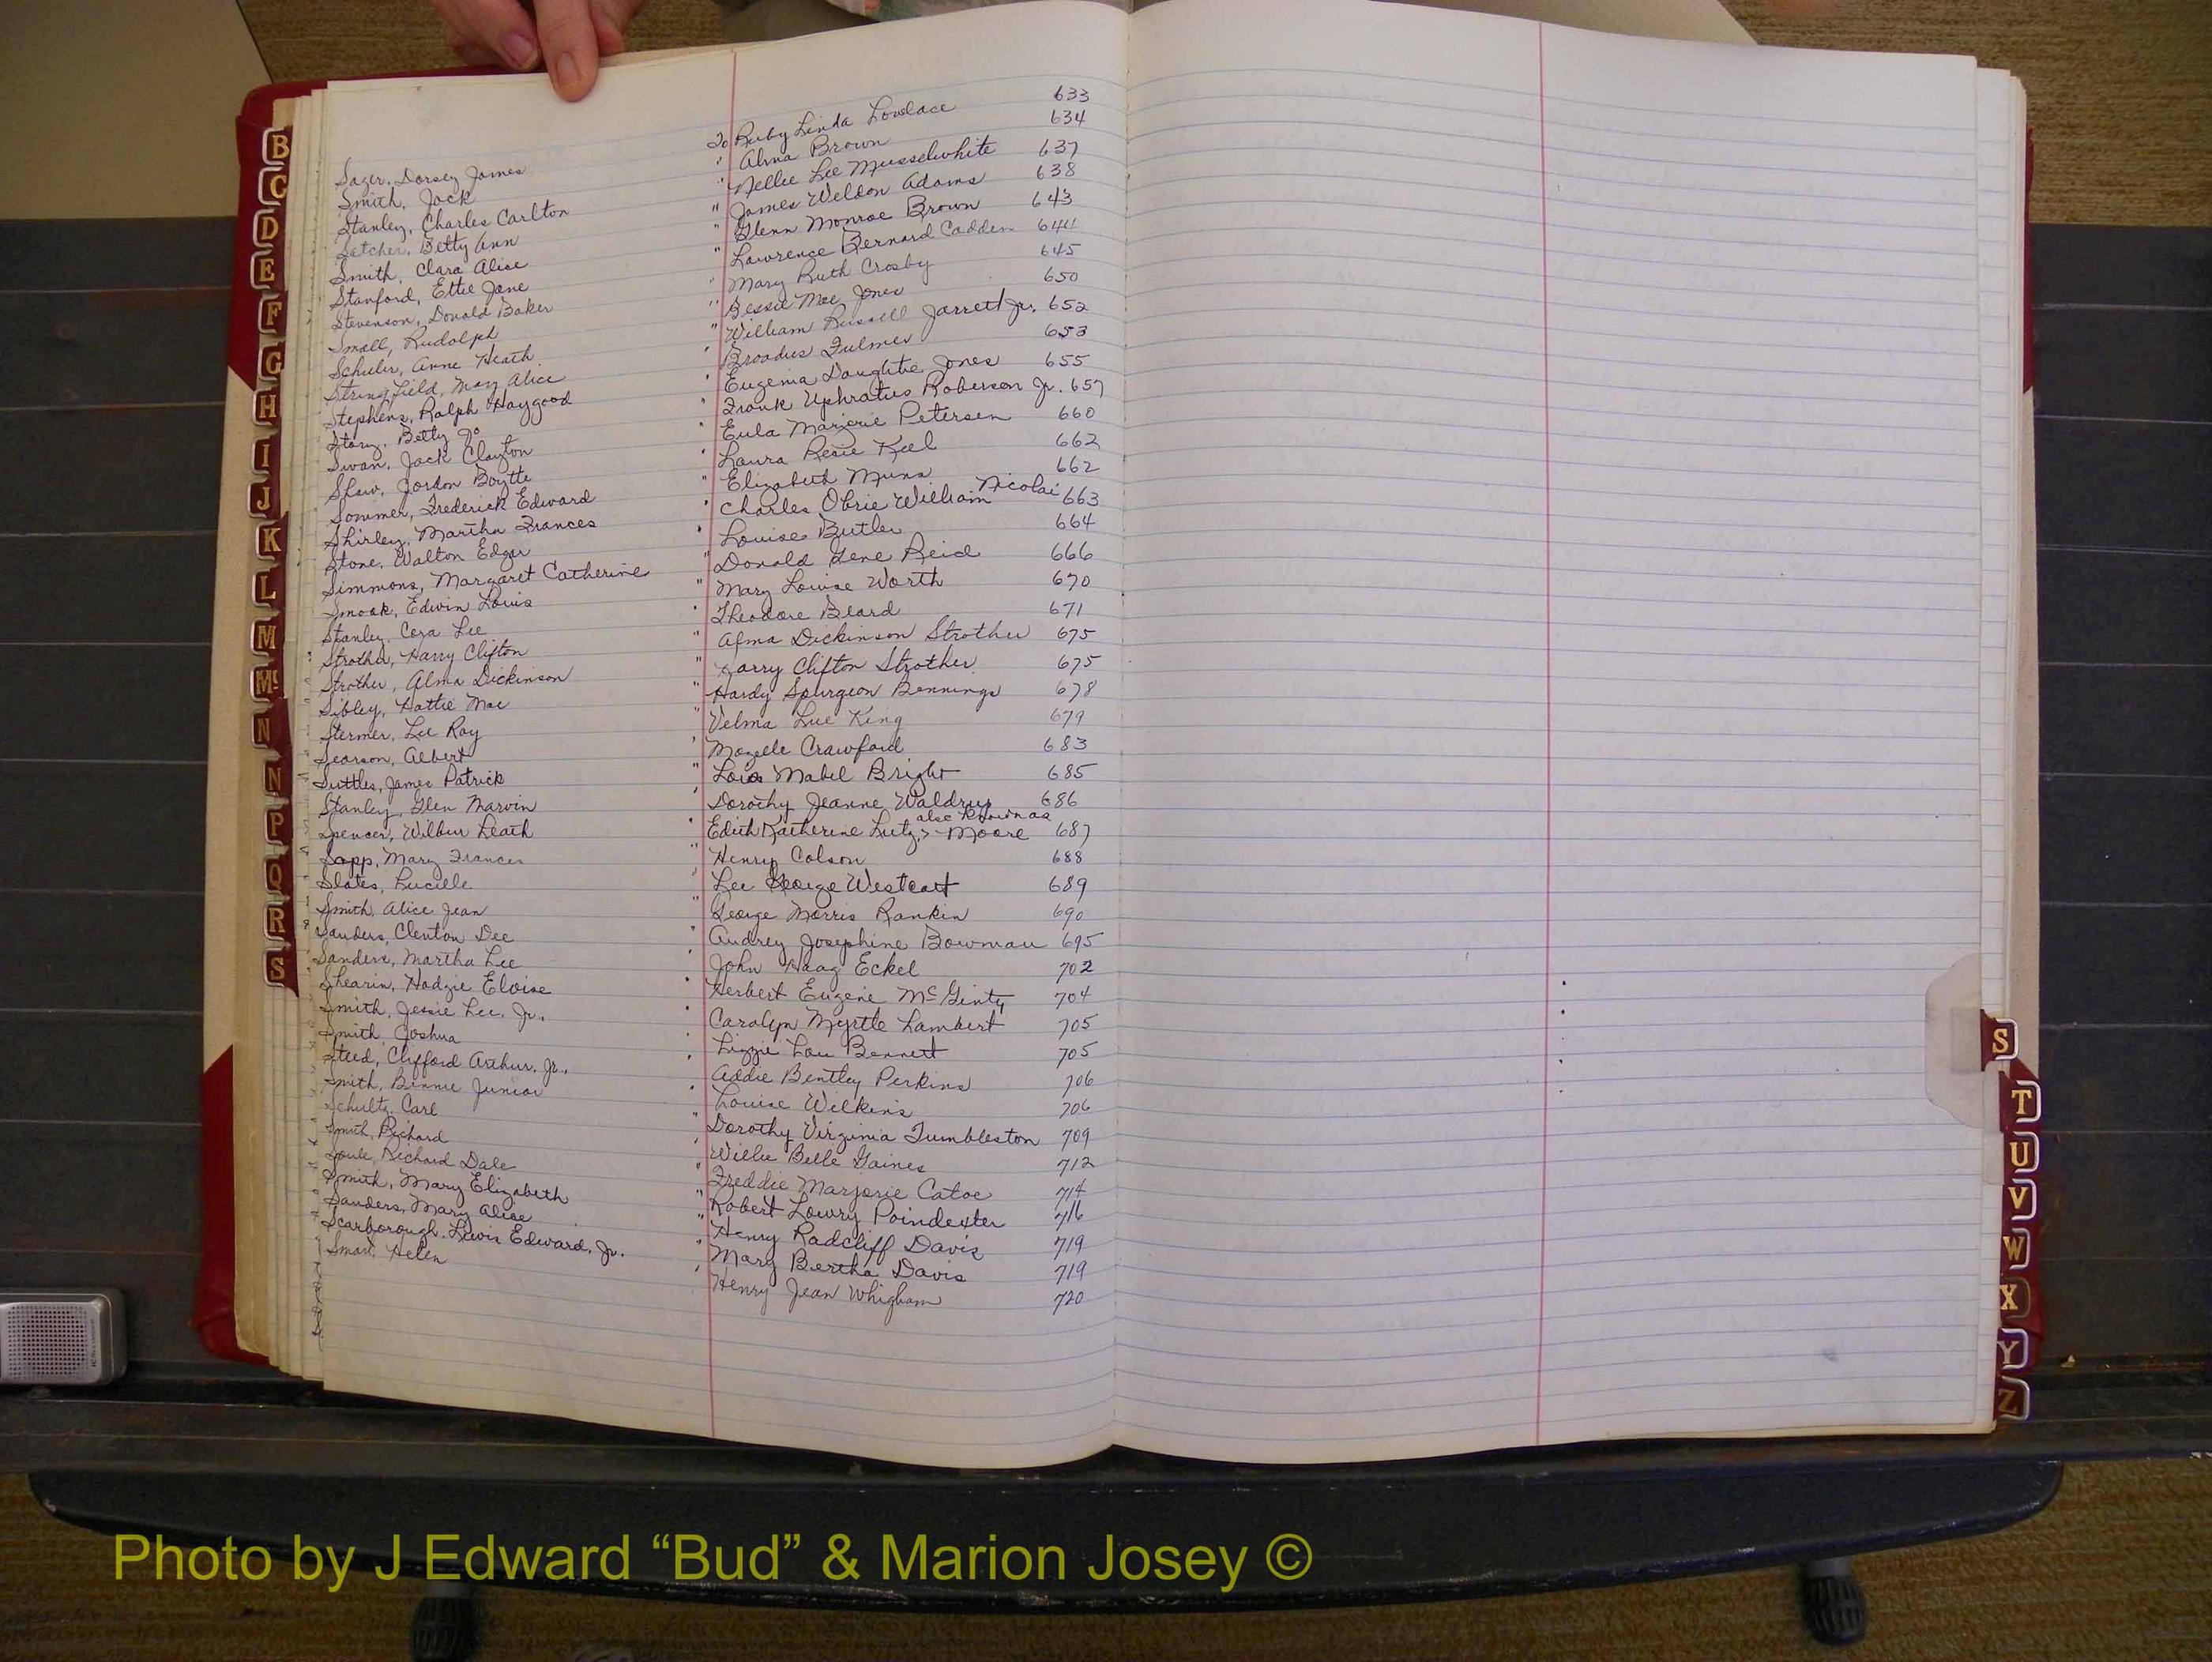 Sager, Dorsey James To Ruby Linda Lovelace 633
Smith, Jack " Alma Brown 634
Stanley, Charles Carlton " Nellie Lee Musselwhite 637
Satcher, Betty Ann " James Weldon Adams 638
Smith, Clara Alice " Glenn Monroe Brown 643
Stanford, Ettie Jane " Lawrence Bernard Cadden 644
Stevenson, Donald Baker " Mary Ruth Crosby 645
Small, Rudolph " Bessie Mae Jones 650
Schuler, Anne Heath " William Russell Jarrett Jr. 652
Stringfield, May Alice " Broadus Fulmer 653
Stephens, Ralph Haygood " Eugenia Daughtie Jones 655
Story, Betty Jo " Frank Uphratus Roberson Jr. 657
Swan, Jack Clayton " Eula Marjorie Petersen 660
Shaw, Gordon Boytte " Laura Resie Keel 662
Sommer, Frederick Edward " Elizabeth Munn 662
Shirley, Martha Frances " Charles Obrie William Nicolai 663
Stone, Walton Edgar " Louise Butler 664
Simmons, Margaret Catherine " Donald Gene Reid 666
Smoak, Edwin Louis " Mary Louise Worth 670
Stanley, Cora Lee " Theodore Beard 671
Strother, Harry Clifton " Alma Dickinson Strother 675
Strother, Alma Dickinson " Harry Clifton Strother 675
Sibley, Hattie Mae " Hardy Spurgeon Bennings 678
Stermer, Lee Roy " Velma Lue King 679
Searson, Albert " Mozelle Crawford 683
Suttles, James Patrick " Lois Mabel Bright 685
Stanley, Glen Marvin " Dorothy Jeanne Waldrup 686
Spencer, Wilbur Leath " Edith Katherine Lutz, also known as Moore 687
Sapp, Mary Frances " Henry Colson 688
Slates, Lucille " Lee George Westcott 689
Smith, Alice Jean " George Morris Rankin 690
Sanders, Clenton Dee " Audrey Josephine Bowman 695
Sanders, Martha Lee " John Haag Eckel 702
Shearin, Hadzie Eloise " Herbert Eugene McGinty 704
Smith, Jessie Lee, Jr. " Carolyn Myrtle Lambert 705
Smith, Joshua " Lizzie Lou Bennett 705
Steed, Clifford Arthur, Jr. " Addie Bentley Perkins 706
Smith, Bennie Junior " Louise Wilkins 706
Schultz, Carl " Dorothy Virginia Tumbleston 709
Smith, Richard " Willie Belle Gaines 712
Soule, Richard Dale " Freddie Marjorie Catoe 714
Smith, Mary Elizabeth " Robert Lowry Poindexter 716
Sanders, Mary Alice " Henry Radcliff Davis 719
Scarborough, Lewis Edward, Jr. " Mary Bertha Davis 719
Smart, Helen " Henry Jean Whigham 720
B
C
D
E
F
G
H
I
J
K
L
M
Mc
N
N
P
Q
R
S
S
T
U
V
W
X
Y
Z
Photo by J Edward “Bud” & Marion Josey ©